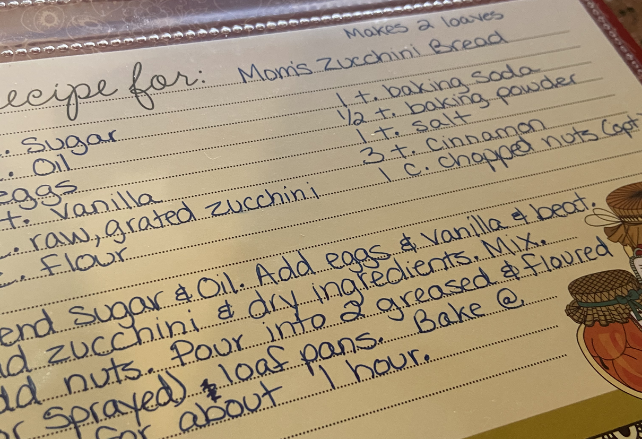 Makes 2 loaves
ecipe for: Mom's Zucchini Bread
. Sugar 1 t. baking soda
. Oil 1/2 t. baking powder
eggs 1 t. salt
t. Vanilla 3 t. Cinnamon
. raw, grated zucchini 1 c. chopped nuts (opt
. Flour
end Sugar & Oil. Add eggs & Vanilla & beat.
d zucchini & dry ingredients. Mix.
dd nuts. Pour into 2 greased & floured
r sprayed) loaf pans. Bake @
for about 1 hour.